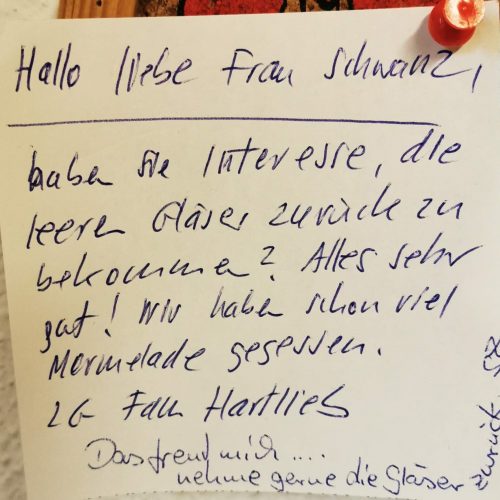 Hallo liebe Frau Schwanz,
haben Sie Interesse, die
leeren Gläser zurück zu
bekommen? Alles sehr
gut! Wir haben schon viel
Mormelade gegessen.
LG Fam Hartlieb
Das freut mich ....
nehme gerne die Gläser
zurück